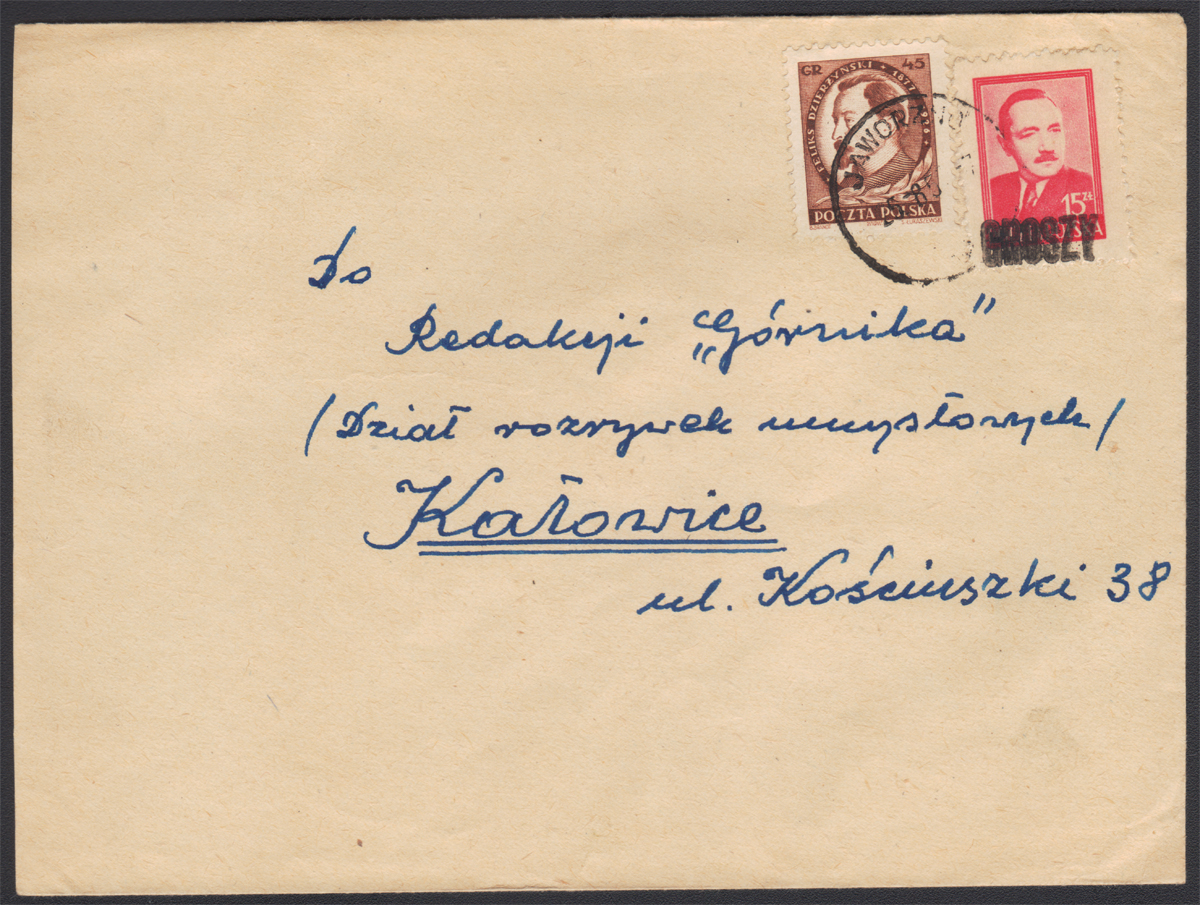 GR 45
FELIKS DZIERŻYŃSKI • 1877 1926 •
POCZTA POLSKA
JAWORZNO
15 ZŁ
GROSZY
Do
Redakcji „Górnika”
/Dział rozrywek umysłowych/
Katowice
ul. Kościuszki 38